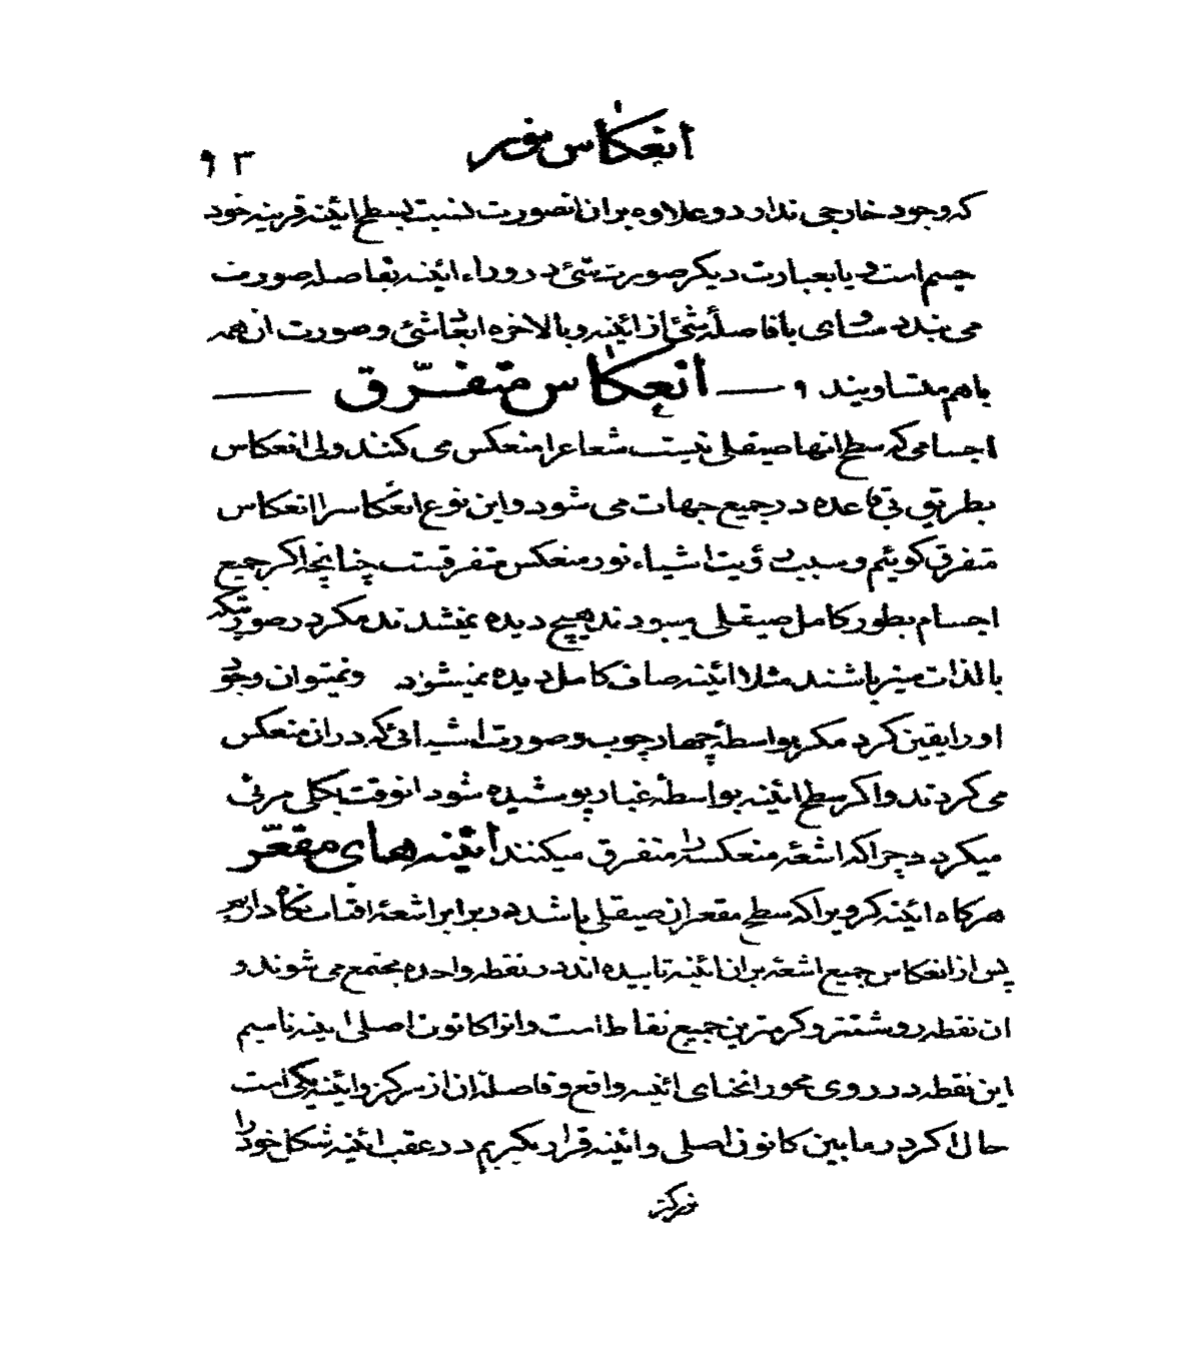 انعکاس نور
۹۳
که وجود خارجی ندارد و علاوه بران انصورت نسبت بسطح ائینه قرینه خود
جسم است و یا بعبارت دیکر صورت شئ در وراء ائینه بفاصله صورت
می بندد مساوی با فاصلهٔ شئ از ائینه و بالاخره ابعاد شئ و صورت ان همه
با هم متساویند و — انعکاس متفرّق —
اجسامی که سطح انها صیقلی نیست شعاع را منعکس می کنند ولی انعکاس
بطریق بی قاعده در جمیع جهات می شود و این نوع انعکاس را انعکاس
متفرق کوئیم و سبب رؤیت اشیاء نور منعکس متفرقست چنانچه اکر جمیع
اجسام بطور کامل صیقلی میبودند هیچ دیده نمیشدند مکر در صورتیکه
بالذات منیر باشند مثلا ائینه صاف کامل دیده نمیشود و نمیتوان وجود
او را یقین کرد مکر بواسطهٔ چهار چوب و صورت اشیائی که در ان منعکس
می کردند و اکر سطح ائینه بواسطهٔ غبار پوشیده شود انوقت بکلی مرئی
میکردد چراکه اشعهٔ منعکسه را متفرق میکنند ائینه های مقعّر
هرکاه ائینه کرویرا که سطح مقعر ان صیقلی باشد در برابر اشعهٔ افتاب نکاه داریم
پس از انعکاس جمیع اشعه بران ائینه تابیده اند در نقطه واحده مجتمع می شوند و
ان نقطه روشنتر و کرمترین جمیع نقاط است و انرا کانون اصلی ائینه نامیم
این نقطه در روی محور انحنای ائینه واقع و فاصلهٔ ان از مرکز و ائینه یکی است
حال اکر در مابین کانون اصلی و ائینه قرار بکیریم در عقب ائینه شکل خود را